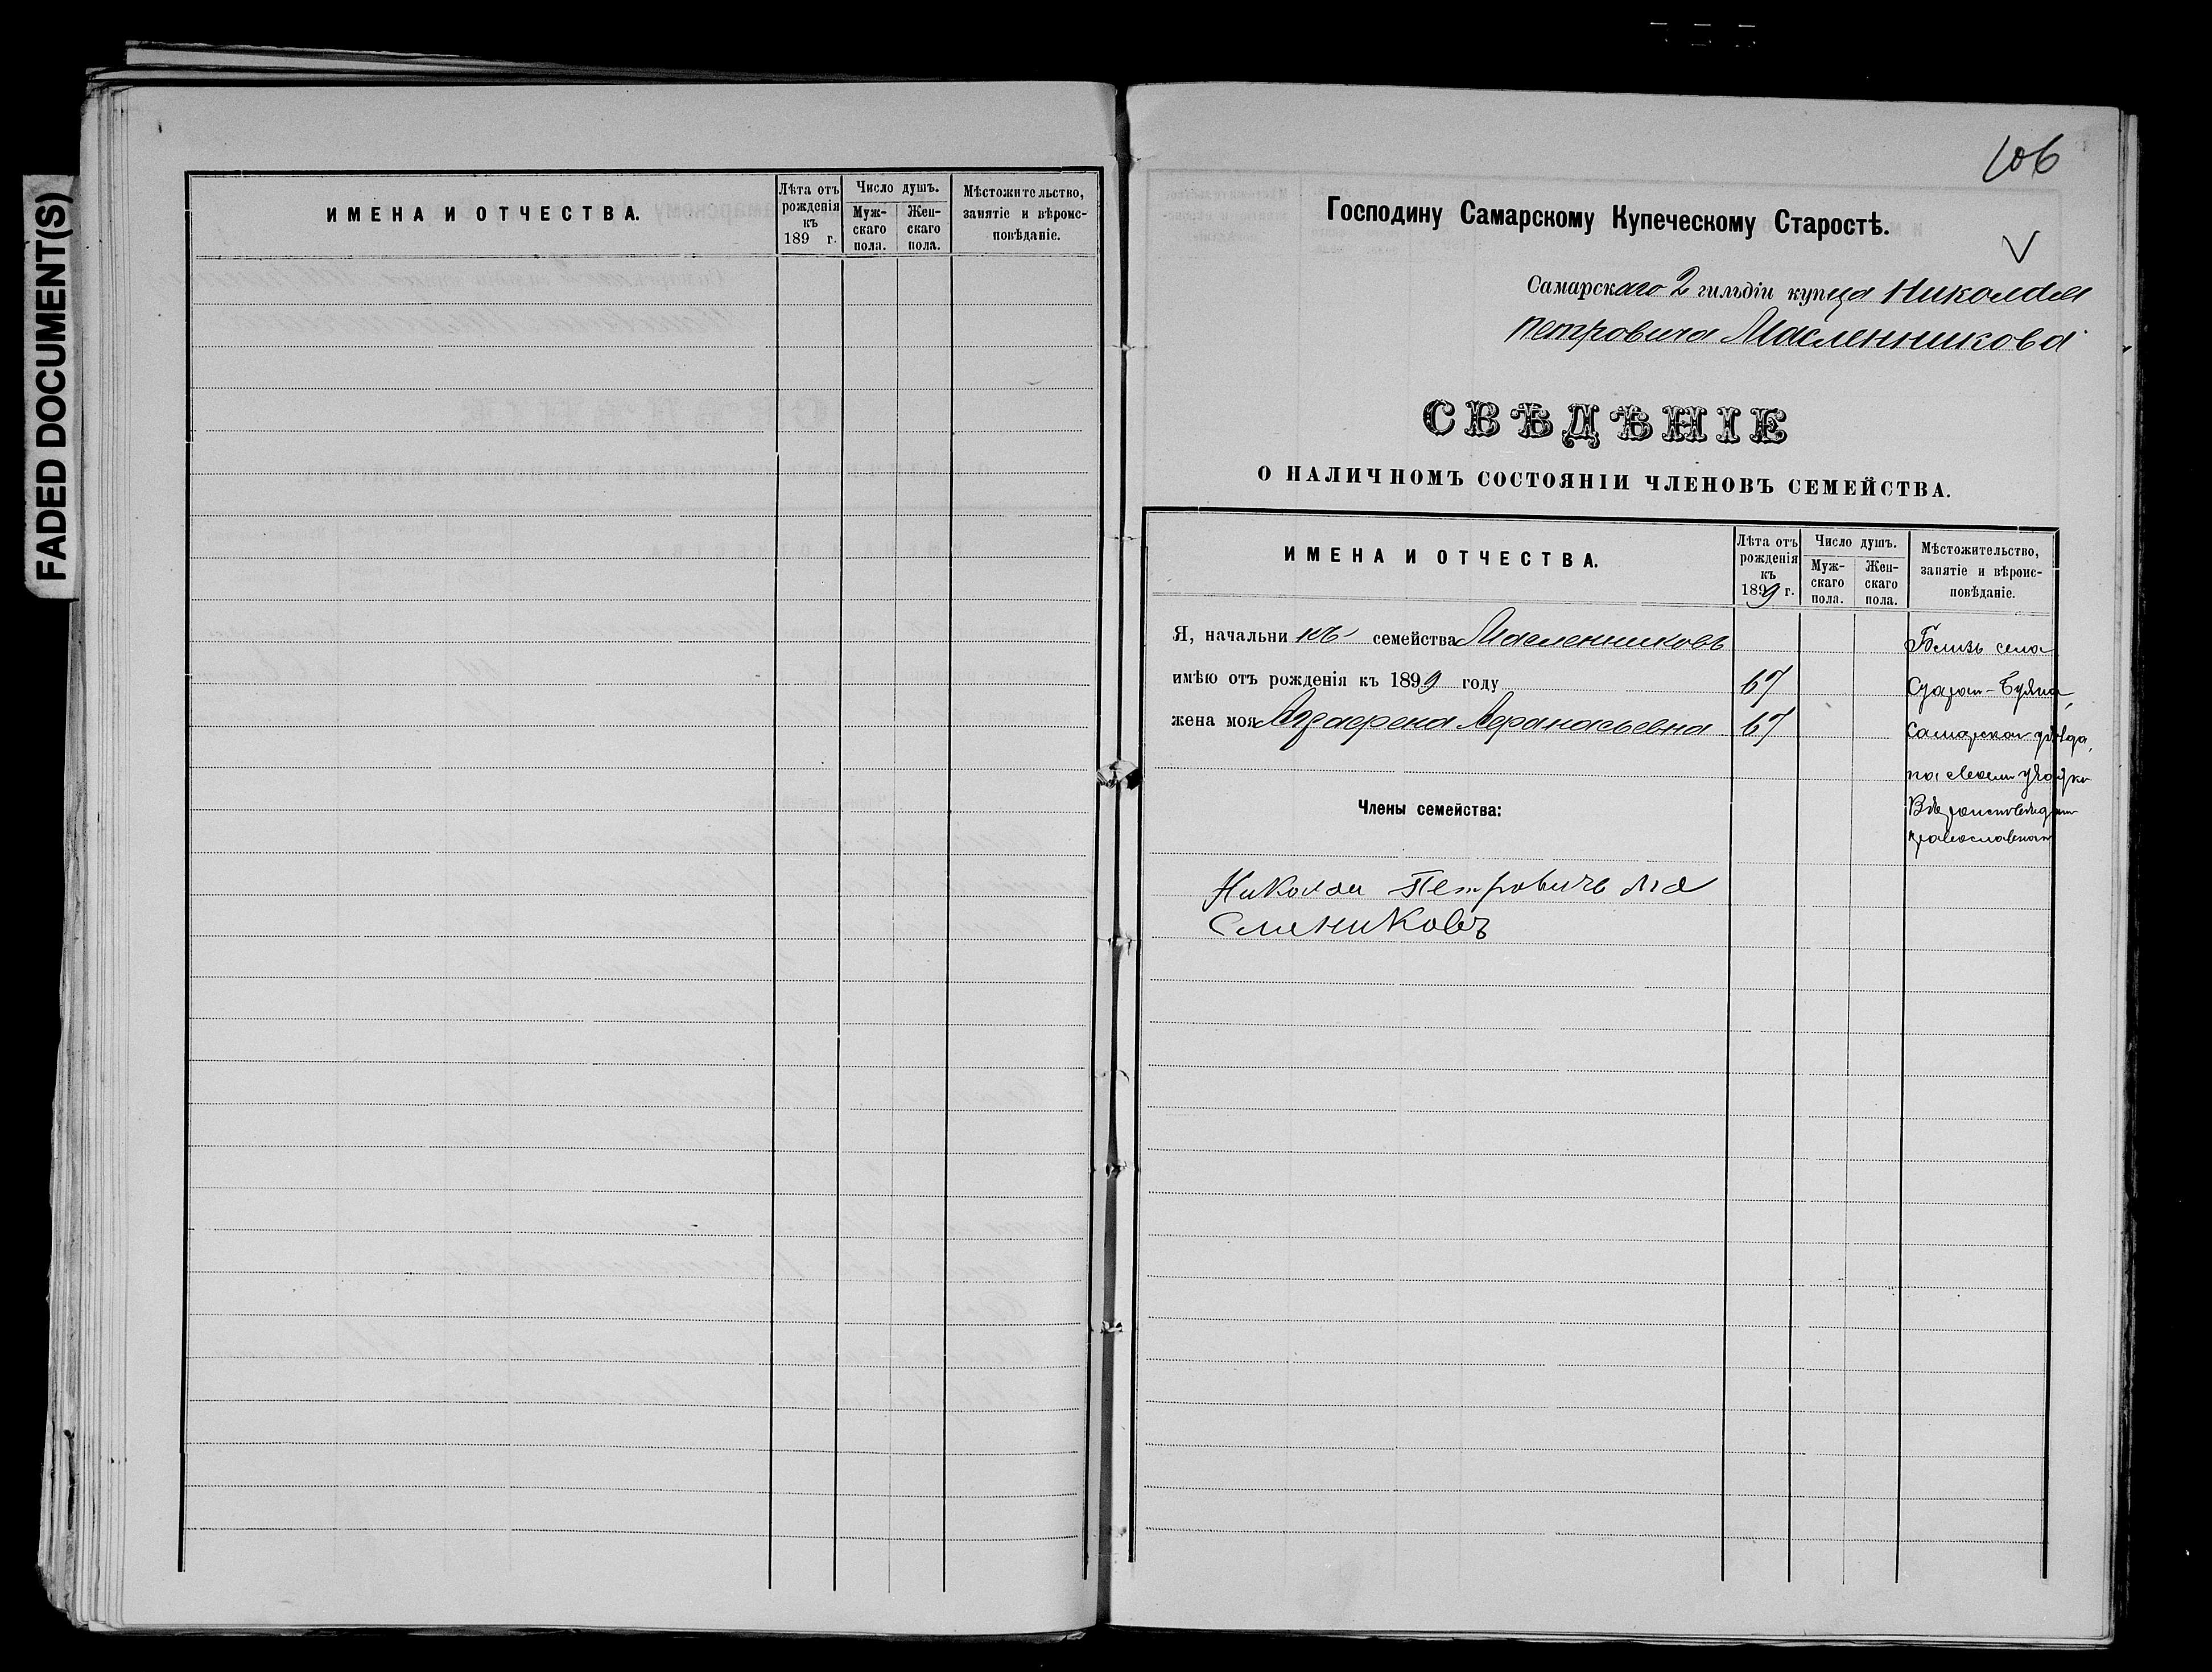 FADED DOCUMENT(S)
ИМЕНА И ОТЧЕСТВА.
Лѣта отъ рожденія къ 189 г.
Число душъ.
Муж-скаго пола.
Жен-скаго пола.
Мѣстожительство, занятіе и вѣроис-повѣданіе.
106
Господину Самарскому Купеческому Старостѣ.
Самарскаго 2 гильдіи купца Николая
Петровича Масленникова
СВѢДѢНІЕ
О НАЛИЧНОМЪ СОСТОЯНІИ ЧЛЕНОВЪ СЕМЕЙСТВА.
ИМЕНА И ОТЧЕСТВА.
Лѣта отъ рожденія къ 1899 г.
Число душъ.
Муж-скаго пола.
Жен-скаго пола.
Мѣстожительство, занятіе и вѣроис-повѣданіе.
Я, начальникъ семейства Масленниковъ
имѣю отъ рожденія къ 1899 году 67
жена моя Аграфена Афанасьевна 67
Близь села
Самарскаго уѣзда,
на своем участке
Члены семейства:
Николаи Петровичъ Ма
слениковъ